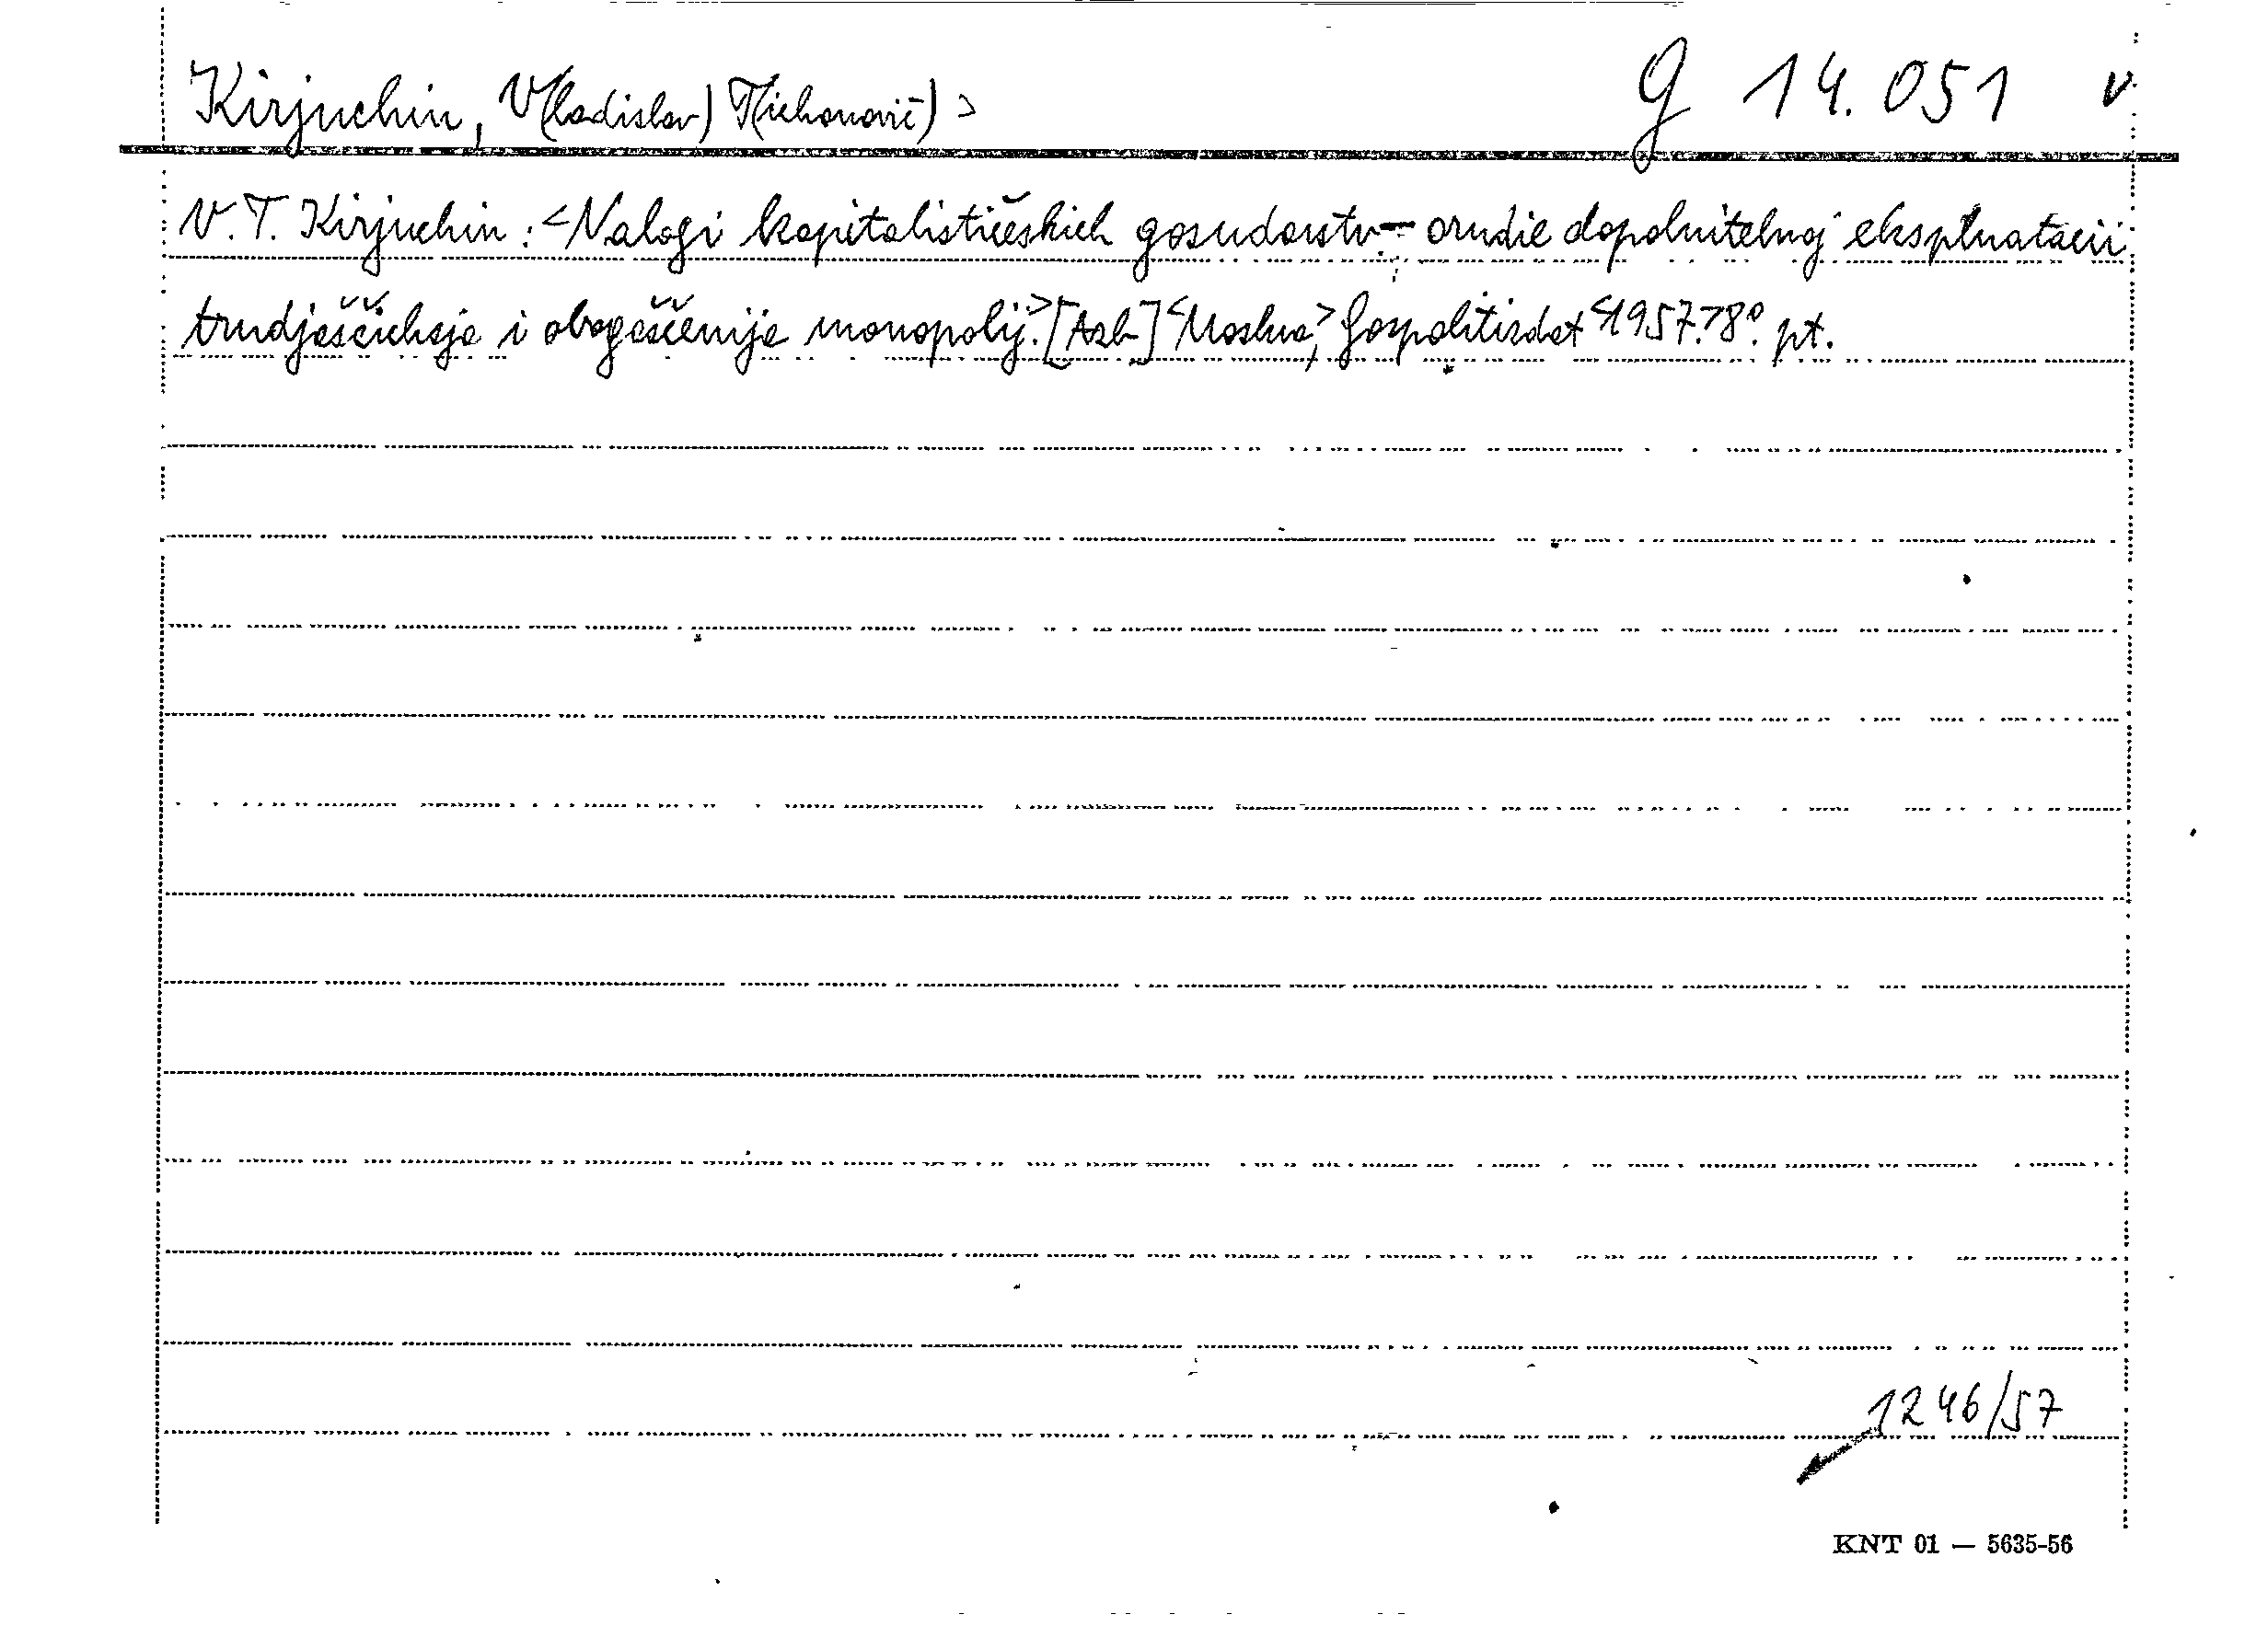 Kirjuchin, V(ladislav) T(ichonovič) > g 14.051 v.
V. T. Kirjuchin: <Nalogi kapitalističeskich gosudarstv - orudie dopolnitelnoj eksplnatacii
trudjaščichsja i obogaščenija monopolij.> [Azb] <Moskva,> Gospolitizdat <1957.> 8°. pt.
1246/57
KNT 01 — 5635-56